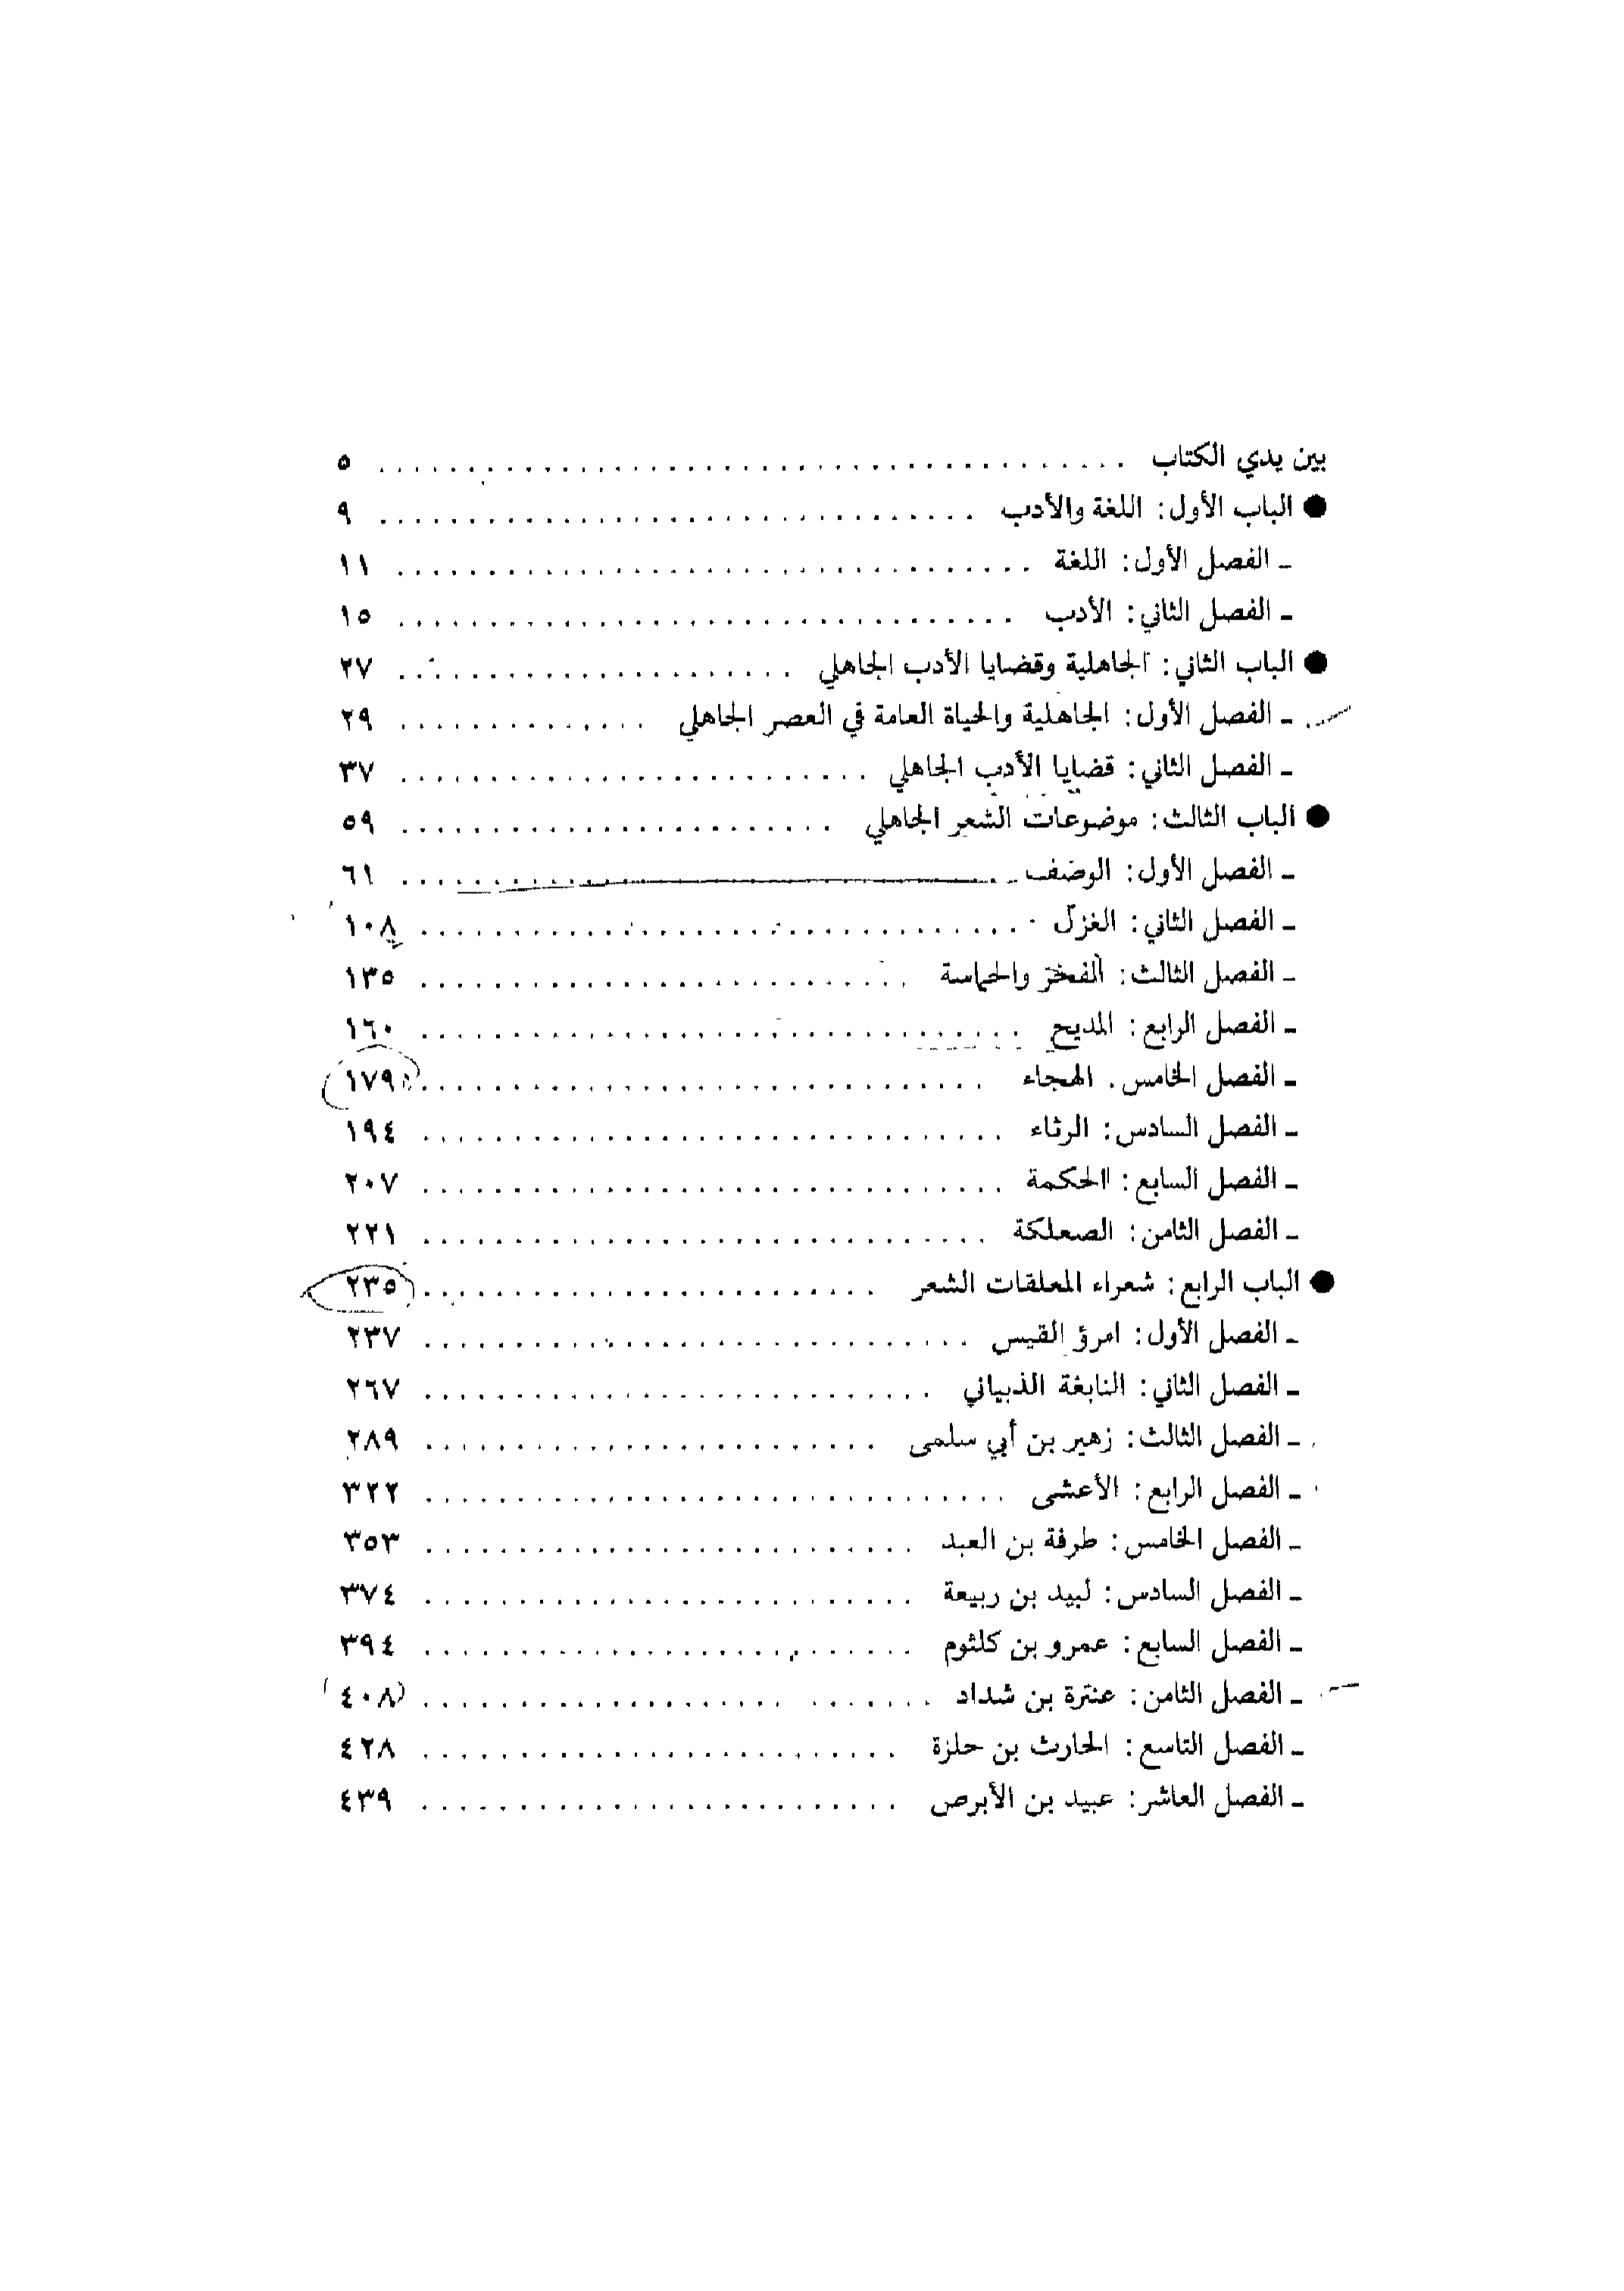 بين يدي الكتاب ........................ ٥
● الباب الأول: اللغة والأدب ........................ ٩
ـ الفصل الأول: اللغة ........................ ١١
ـ الفصل الثاني: الأدب ........................ ١٥
● الباب الثاني: الجاهلية وقضايا الأدب الجاهلي ........................ ٢٧
ـ الفصل الأول: الجاهلية والحياة العامة في العصر الجاهلي ........................ ٢٩
ـ الفصل الثاني: قضايا الأدب الجاهلي ........................ ٣٧
● الباب الثالث: موضوعات الشعر الجاهلي ........................ ٥٩
ـ الفصل الأول: الوصف ........................ ٦١
ـ الفصل الثاني: الغزل ........................ ١٠٨
ـ الفصل الثالث: الفخر والحماسة ........................ ١٣٥
ـ الفصل الرابع: المديح ........................ ١٦٠
ـ الفصل الخامس. الهجاء ........................ ١٧٩
ـ الفصل السادس: الرثاء ........................ ١٩٤
ـ الفصل السابع: الحكمة ........................ ٢٠٧
ـ الفصل الثامن: الصعلكة ........................ ٢٢١
● الباب الرابع: شعراء المعلقات الشعر ........................ ٢٣٥
ـ الفصل الأول: امرؤ القيس ........................ ٢٣٧
ـ الفصل الثاني: النابغة الذبياني ........................ ٢٦٧
ـ الفصل الثالث: زهير بن أبي سلمى ........................ ٢٨٩
ـ الفصل الرابع: الأعشى ........................ ٣٢٢
ـ الفصل الخامس: طرفة بن العبد ........................ ٣٥٣
ـ الفصل السادس: لبيد بن ربيعة ........................ ٣٧٤
ـ الفصل السابع: عمرو بن كلثوم ........................ ٣٩٤
ـ الفصل الثامن: عنترة بن شداد ........................ ٤٠٨
ـ الفصل التاسع: الحارث بن حلزة ........................ ٤٢٨
ـ الفصل العاشر: عبيد بن الأبرص ........................ ٤٣٩